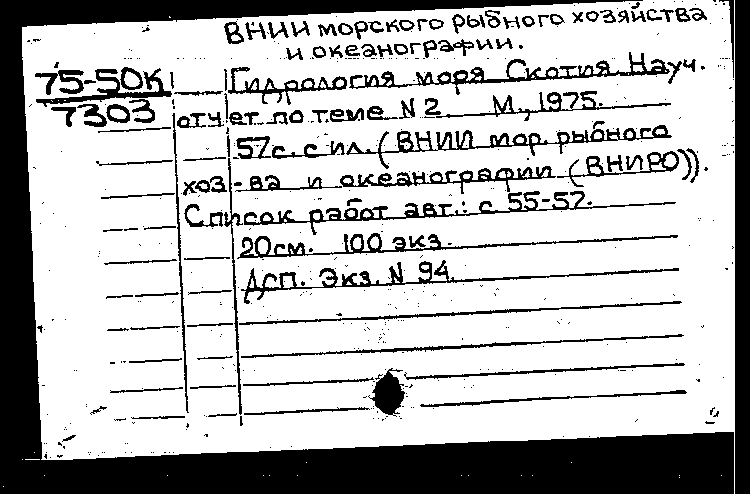 ВНИИ морского рыбного хозяйства
и океанографии.
75-50К
7303
Гидрология моря Скотия. Науч.
отчет по теме N 2. М., 1975.
57с. с ил. (ВНИИ мор. рыбного
хоз-ва и океанографии (ВНИРО)).
Список работ авт.: с 55-57.
20см. 100 экз.
ДСП. Экз. N 94.